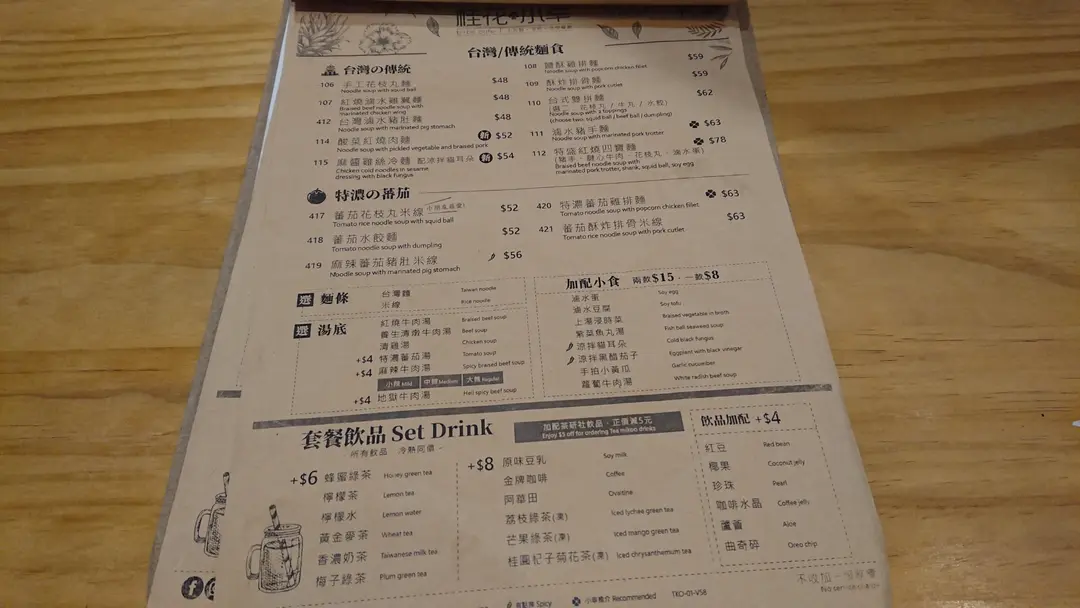 台灣/傳統麵食
台灣の傳統
106 手工花枝丸麵 $48
Noodle soup with squid ball
107 紅燒滷水雞翼麵 $48
Braised beef noodle soup with
marinated chicken wing
412 台灣滷水豬肚麵 $48
Noodle soup with marinated pig stomach
114 酸菜紅燒肉麵 新 $52
Noodle soup with pickled vegetable and braised pork
115 麻醬雞絲冷麵 配涼拌貓耳朵 新 $54
Chicken cold noodles in sesame
dressing with black fungus
108 鹽酥雞排麵 $59
Noodle soup with popcorn chicken fillet
109 酥炸排骨麵 $59
Noodle soup with pork cutlet
110 台式雙拼麵 $62
(選二: 花枝丸 / 牛丸 / 水餃)
Noodle soup with 2 toppings
(choose two: squid ball / beef ball / dumpling)
111 滷水豬手麵 $63
Noodle soup with marinated pork trotter
112 特盛紅燒四寶麵 $78
(豬手、腱心牛肉、花枝丸、滷水蛋)
Braised beef noodle soup with
marinated pork trotter, shank, squid ball, soy egg
特濃の蕃茄
417 蕃茄花枝丸米線 $52
Tomato rice noodle soup with squid ball
418 蕃茄水餃麵 $52
Tomato noodle soup with dumpling
419 麻辣蕃茄豬肚米線 $56
Noodle soup with marinated pig stomach
420 特濃蕃茄雞排麵 $63
Tomato noodle soup with popcorn chicken fillet
421 蕃茄酥炸排骨米線 $63
Tomato rice noodle soup with pork cutlet
選 麵條
台灣麵 Taiwan noodle
米線 Rice noodle
選 湯底
紅燒牛肉湯 Braised beef soup
養生清燉牛肉湯 Beef soup
清雞湯 Chicken soup
+$4 特濃蕃茄湯 Tomato soup
+$4 麻辣牛肉湯 Spicy braised beef soup
小辣 Mild 中辣 Medium 大辣 Regular
+$4 地獄牛肉湯 Hell spicy beef soup
加配小食 兩款$15 · 一款$8
滷水蛋 Soy egg
滷水豆腐 Soy tofu
上湯浸時菜 Braised vegetable in broth
紫菜魚丸湯 Fish ball seaweed soup
涼拌貓耳朵 Cold black fungus
涼拌黑醋茄子 Eggplant with black vinegar
手拍小黃瓜 Garlic cucumber
蘿蔔牛肉湯 White radish beef soup
套餐飲品 Set Drink
- 所有飲品 冷熱同價 -
加配茶研社飲品，正價減5元
Enjoy $5 off for ordering Tea mikon drinks
+$6 蜂蜜綠茶 Honey green tea
檸檬茶 Lemon tea
檸檬水 Lemon water
黃金麥茶 Wheat tea
香濃奶茶 Taiwanese milk tea
梅子綠茶 Plum green tea
+$8 原味豆乳 Soy milk
金牌咖啡 Coffee
阿華田 Ovaltine
荔枝綠茶(凍) Iced lychee green tea
芒果綠茶(凍) Iced mango green tea
桂圓杞子菊花茶(凍) Iced chrysanthemum tea
飲品加配 +$4
紅豆 Red bean
椰果 Coconut jelly
珍珠 Pearl
咖啡水晶 Coffee jelly
蘆薈 Aloe
曲奇碎 Oreo chip
Spicy 小幸推介 Recommended TKO-01-VSB
不收加一服務費